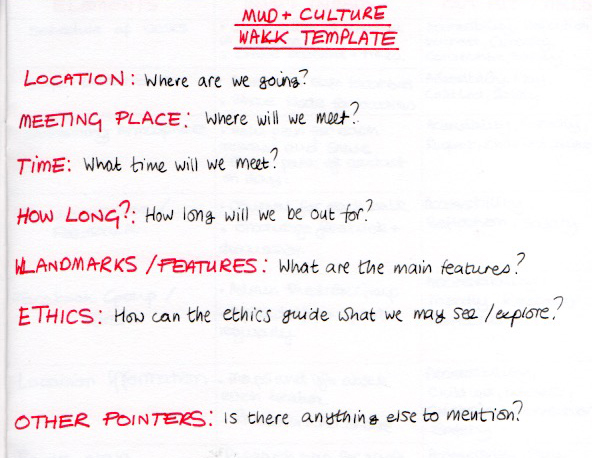 MUD + CULTURE
WALK TEMPLATE
LOCATION: Where are we going?
MEETING PLACE: Where will we meet?
TIME: What time will we meet?
HOW LONG?: How long will we be out for?
LANDMARKS / FEATURES: What are the main features?
ETHICS: How can the ethics guide what we may see / explore?
OTHER POINTERS: Is there anything else to mention?